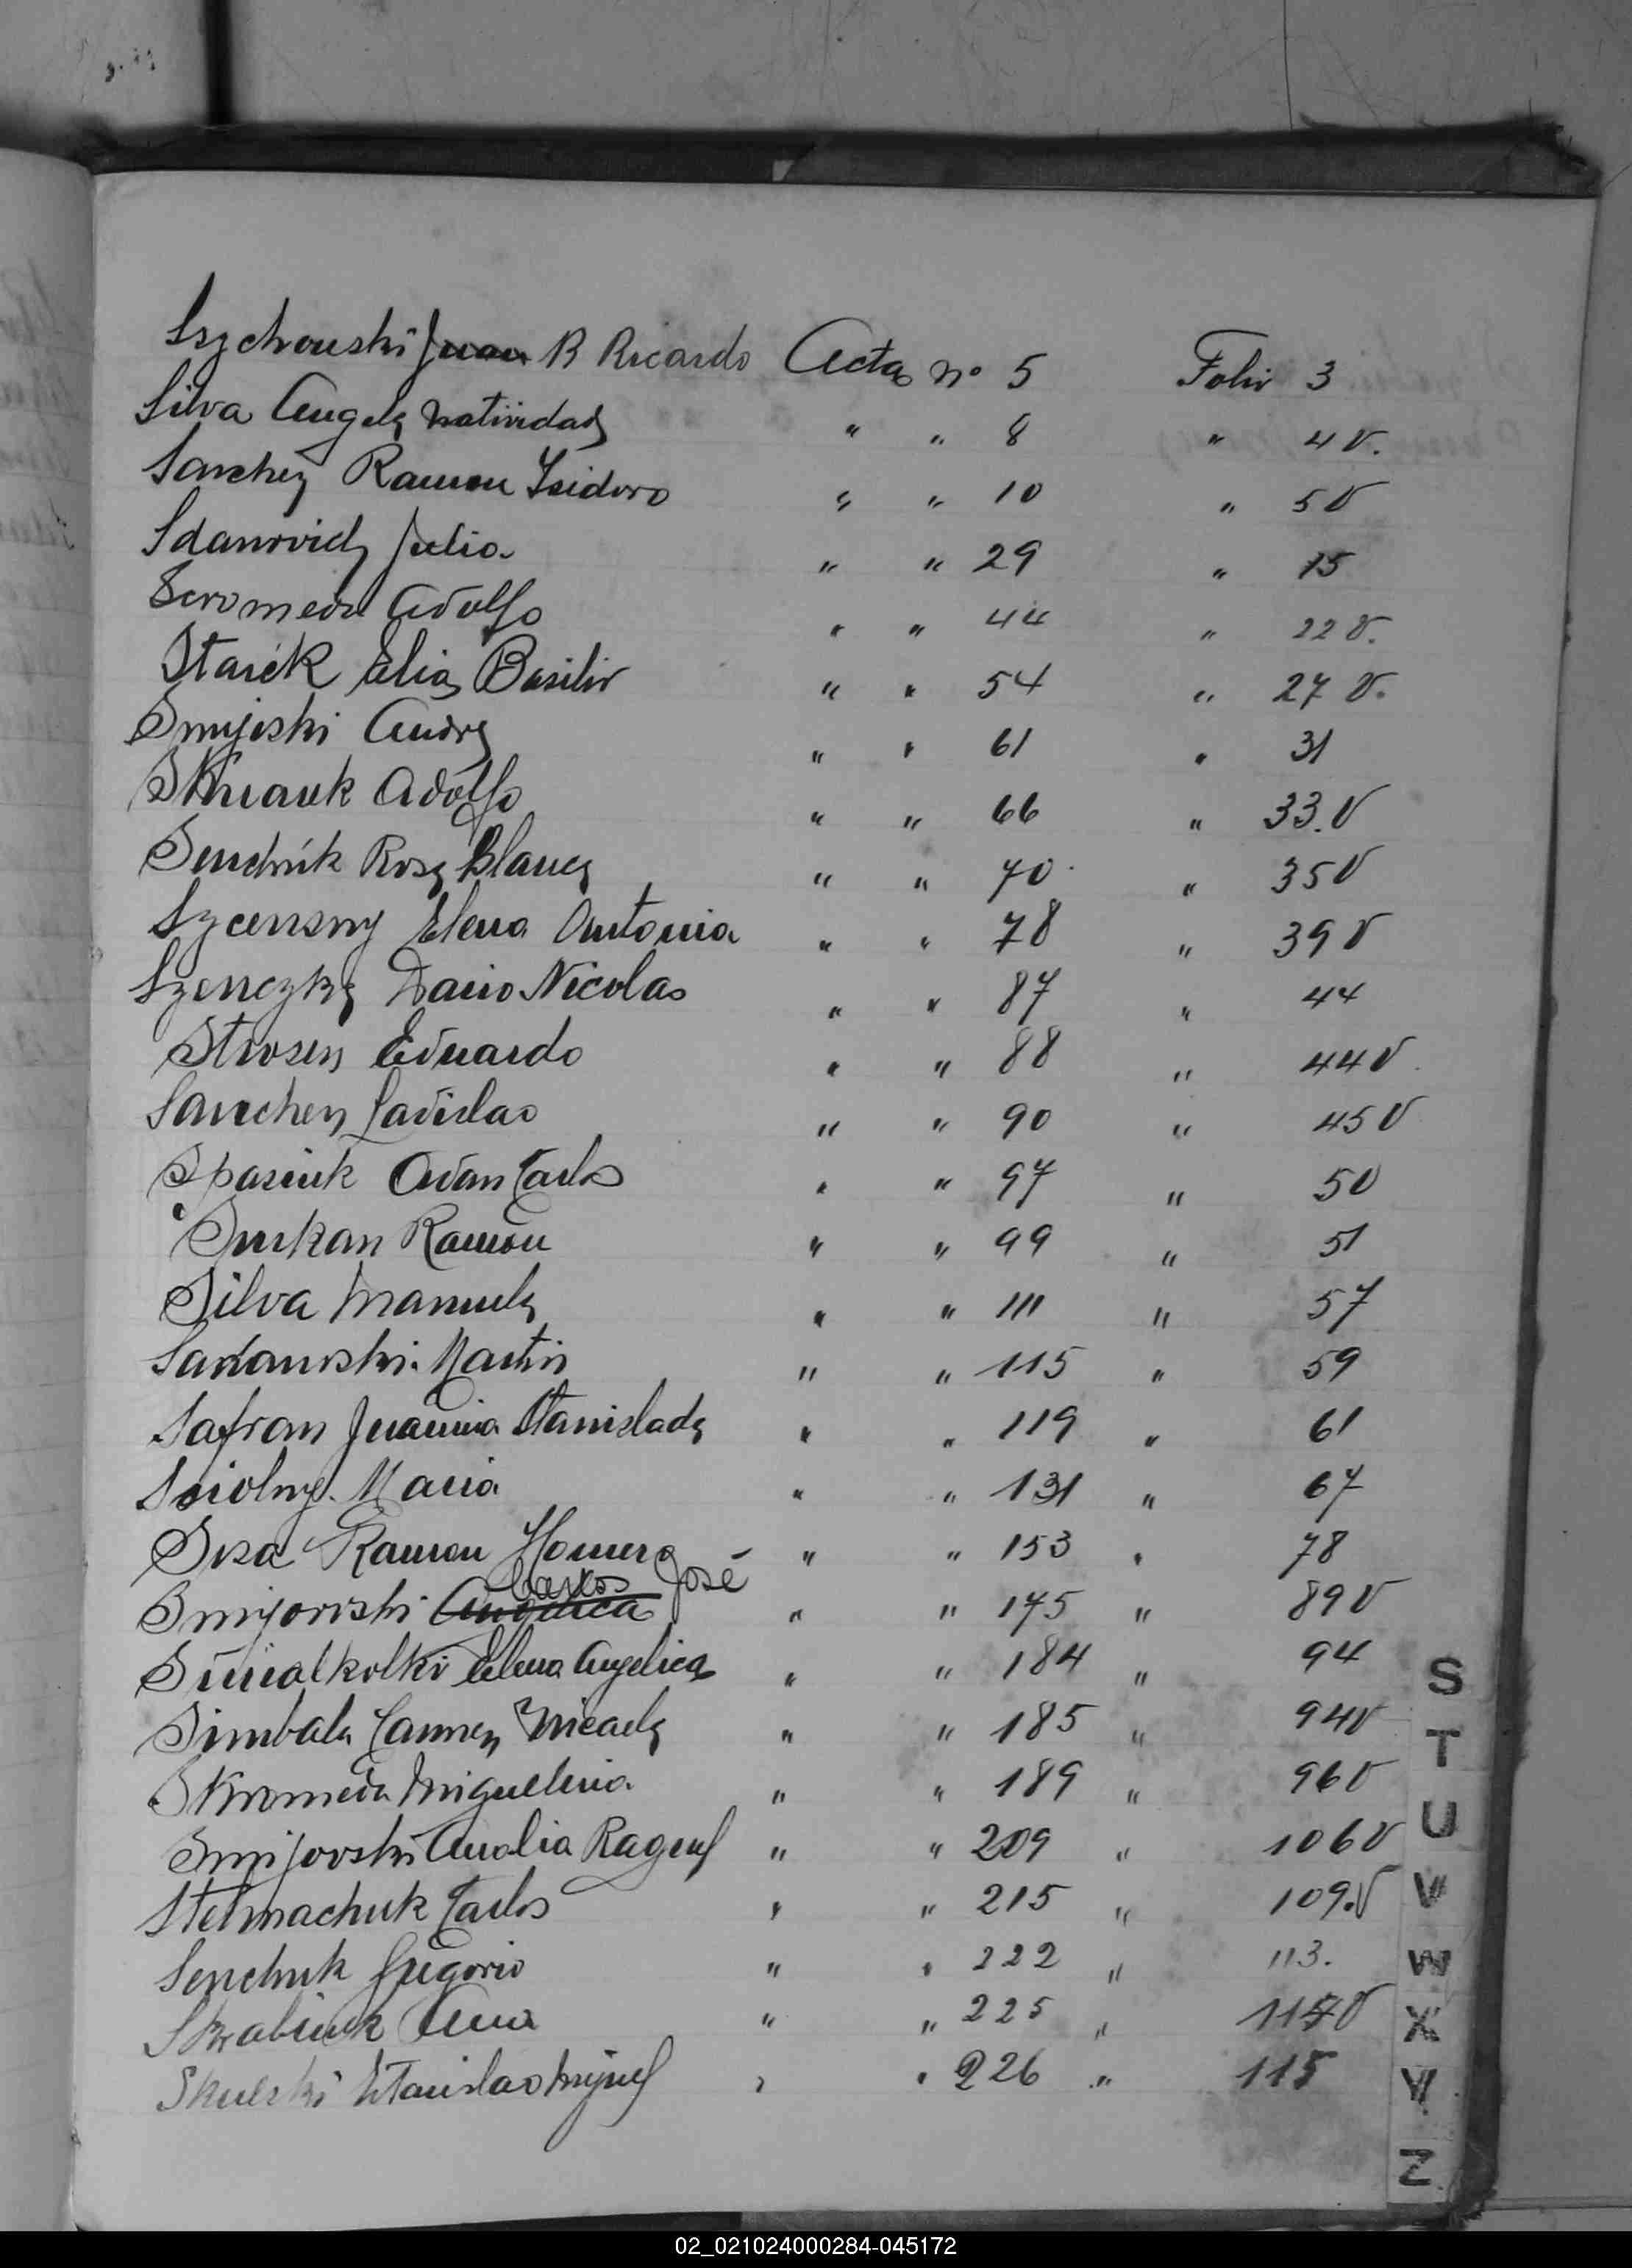 Szychouski Juan R Ricardo Acta nº 5 Folio 3
Silva Angela Natividad " " 8 " 4 V.
Sanchez Ramon Isidoro " " 10 " 5 V
Sdanovich Julia " " 29 " 15
Scromeda Adolfo " " 44 " 22 V.
Starek Elias Basilio " " 54 " 27 V.
Smijeski Andres " " 61 " 31
Adolfo " " 66 " 33. V
Senchuk Rosa Blanca " " 70 " 35 V
Szcensny Elena Antonia " " 78 " 39 V
Szenczka Dario Nicolas " " 87 " 44
Strosen Eduardo " " 88 " 44 V
Sanchez Ladislao " " 90 " 45 V
Spasiuk Adan Carlos " " 97 " 50
Ramón " " 99 " 51
Silva Manuela " " 111 " 57
Martin " " 115 " 59
Safran Juanina Stanislada " " 119 " 61
Maria " " 131 " 67
Sosa Ramon Homero " " 153 " 78
Carlos José
Smijovski Angelica " " 175 " 89 V
Elena Angelica " " 184 " 94
Simbala Carmen Micaela " " 185 " 94 V
Skromeda Miguelina " " 189 " 96 V
Smijovski Analia Raquel " " 209 " 106 V
Stelmachuk Carlos " " 215 " 109. V
Senchuk Gregorio " " 222 " 113.
Skrabiuk Ana " " 225 " 114 V
Skulski Estanislao Miguel " " 226 " 115
S
T
U
V
W
X
Y
Z
02_021024000284-045172